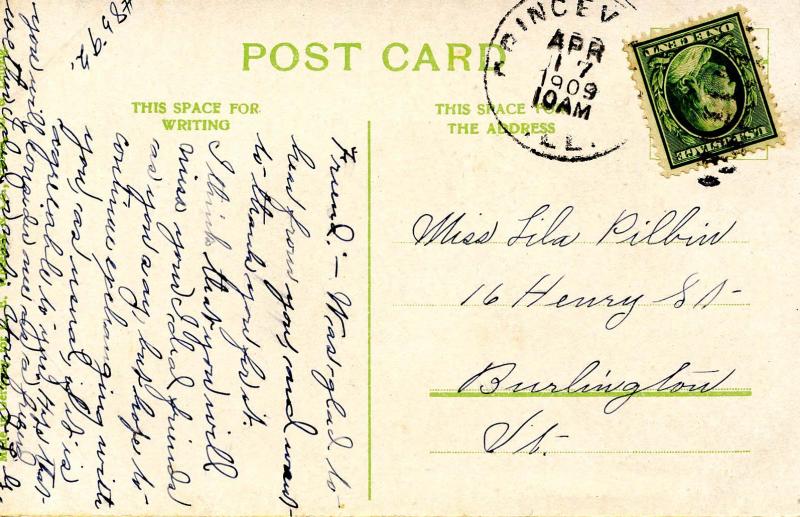 POST CARD
THIS SPACE FOR
WRITING
THIS SPACE FOR
THE ADDRESS
PRINCEV
APR
17
1909
10 AM
ILL.
U.S. POSTAGE
ONE CENT
Miss Lila Pilbin
16 Henry St
Burlington
Vt.
#8592.
Friend:- Was glad to
hear from you and want
to thank you for it.
I think that you will
miss your ideal friends
as you say, but hope to
continue exchanging with
you as usual, if it is
agreeable to you. Hope that
you will consider me as a friend